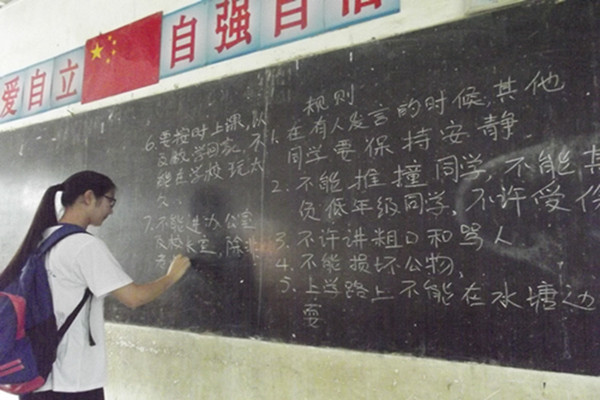 爱自立
自强自信
规则
1. 在有人发言的时候,其他
同学要保持安静.
2. 不能推撞同学,不能其
负低年级同学,不许受伤
3. 不许讲粗口和骂人
4. 不能损坏公物,
5. 上学路上不能在水塘边
耍
6. 要按时上课,以
及放学回家,不
能在学校玩太
久.
7. 不能进办公室
及校长室,除非